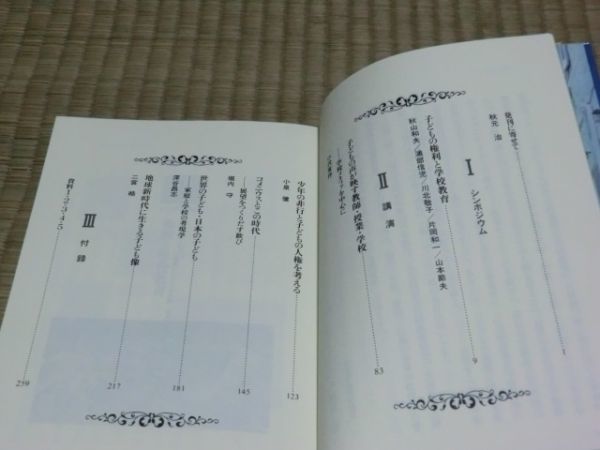 発刊に寄せて 1
秋元 治
I シンポジウム
子どもの権利と学校教育 9
秋山和夫/浦部信児/川北敬子/片岡和一/山本節夫
II 講演
子どもの声が映す教師・授業・学校 83
少年の非行と子どもの人権を考える 123
コメニウスとこの時代 145
——展望をつくりだす歓び
堀内 守
世界の子ども・日本の子ども 181
——家庭と学校の青現学
深谷昌志
地球新時代に生きる子ども像 217
二宮 皓
III 付録
資料1・2・3・4・5 259